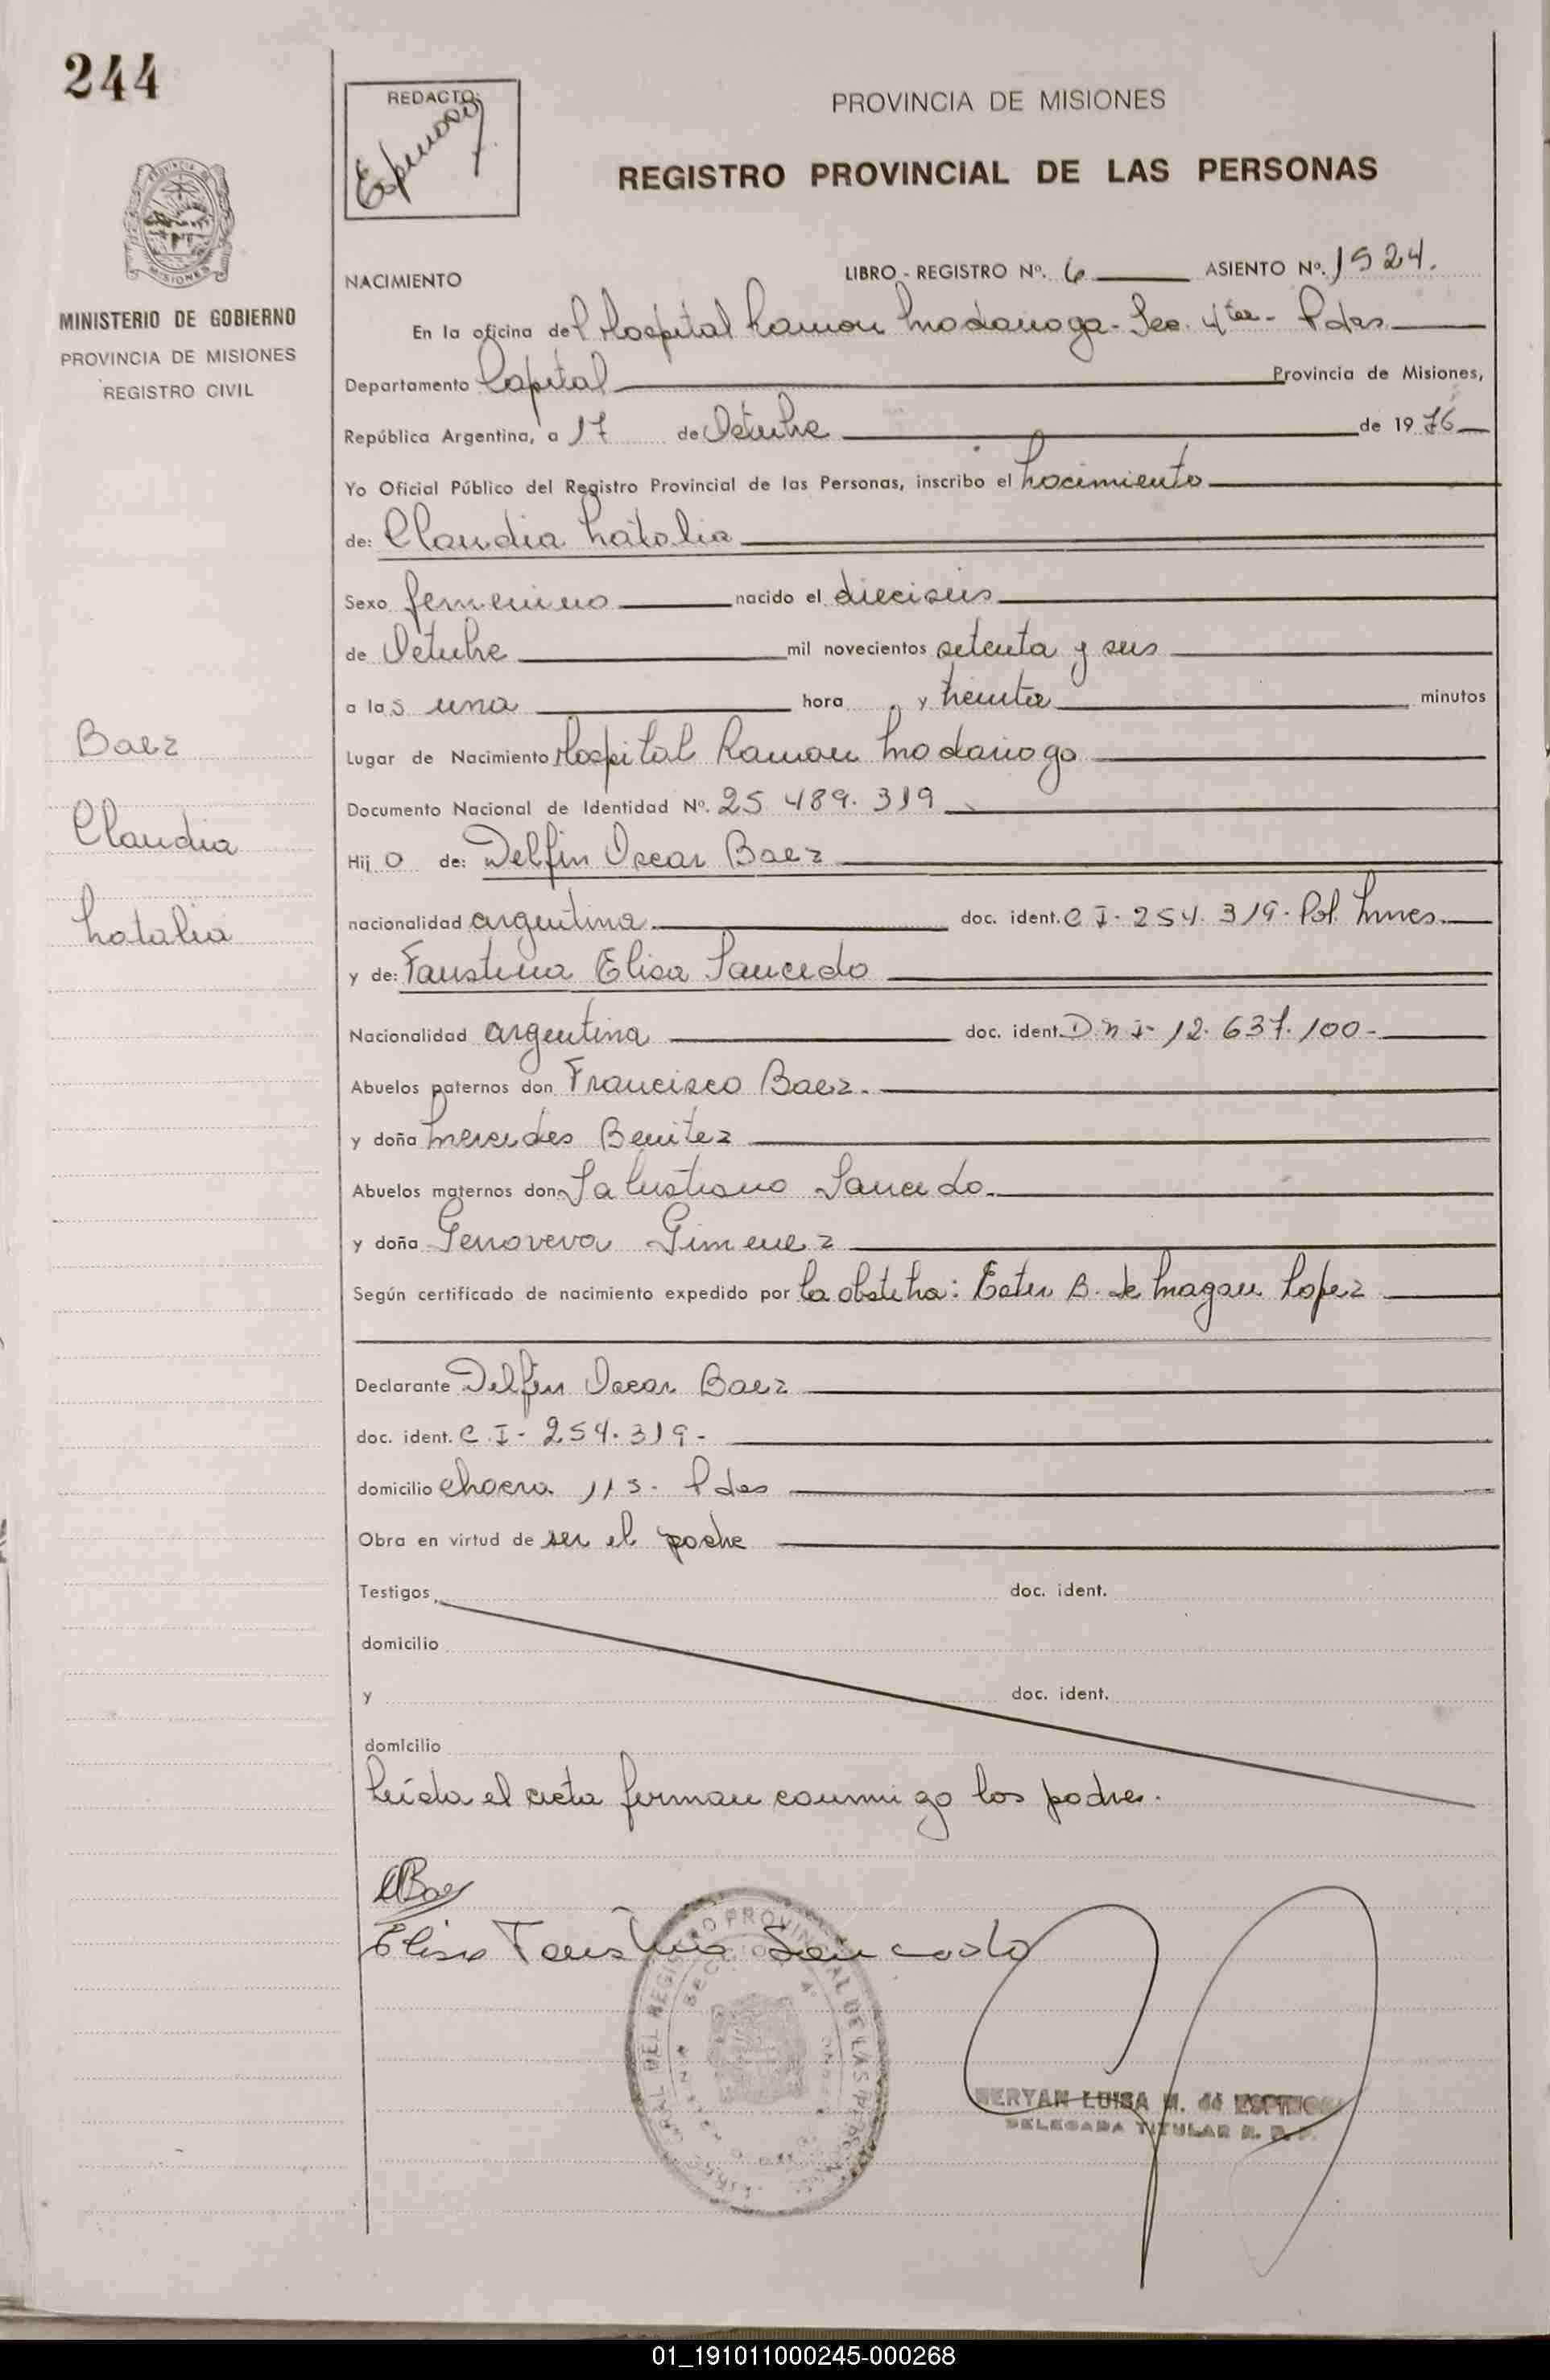 244
REDACTO:
Espinosa
PROVINCIA DE MISIONES
REGISTRO PROVINCIAL DE LAS PERSONAS
MINISTERIO DE GOBIERNO
PROVINCIA DE MISIONES
REGISTRO CIVIL
NACIMIENTO
LIBRO - REGISTRO Nº. 6 ASIENTO Nº. 1924.
En la oficina del Hospital Ramon Madariaga - Sec. 4ta - Pdas
Departamento Capital Provincia de Misiones,
República Argentina, a 17 de Octubre de 1976
Yo Oficial Público del Registro Provincial de las Personas, inscribo el Nacimiento
de: Claudia Natalia
Sexo femenino nacido el dieciseis
de Octubre mil novecientos setenta y seis
a las una hora y treinta minutos
Lugar de Nacimiento Hospital Ramon Madariaga
Documento Nacional de Identidad Nº. 25 489. 319
Hij a de: Delfin Oscar Baez
nacionalidad argentina doc. ident. C I - 254. 319 - Pol. Mnes.
y de: Faustina Elisa Saucedo
Nacionalidad argentina doc. ident. D N I - 12. 637. 100 -
Abuelos paternos don Francisco Baez.
y doña Mercedes Benitez
Abuelos maternos don Salustiano Saucedo.
y doña Genoveva Gimenez
Según certificado de nacimiento expedido por la obstetra: Ester B. de Magan Lopez
Declarante Delfin Oscar Baez
doc. ident. C. I - 254. 319 -
domicilio chacra 113 - Pdas
Obra en virtud de ser el padre
Testigos doc. ident.
domicilio
y doc. ident.
domicilio
Leida el acta firman conmigo los padres.
Baez
Claudia
Natalia
Elisa Faustina Saucedo
LUISA M. de ESPINOSA
DELEGADA TITULAR R. P. P.
01_191011000245-000268